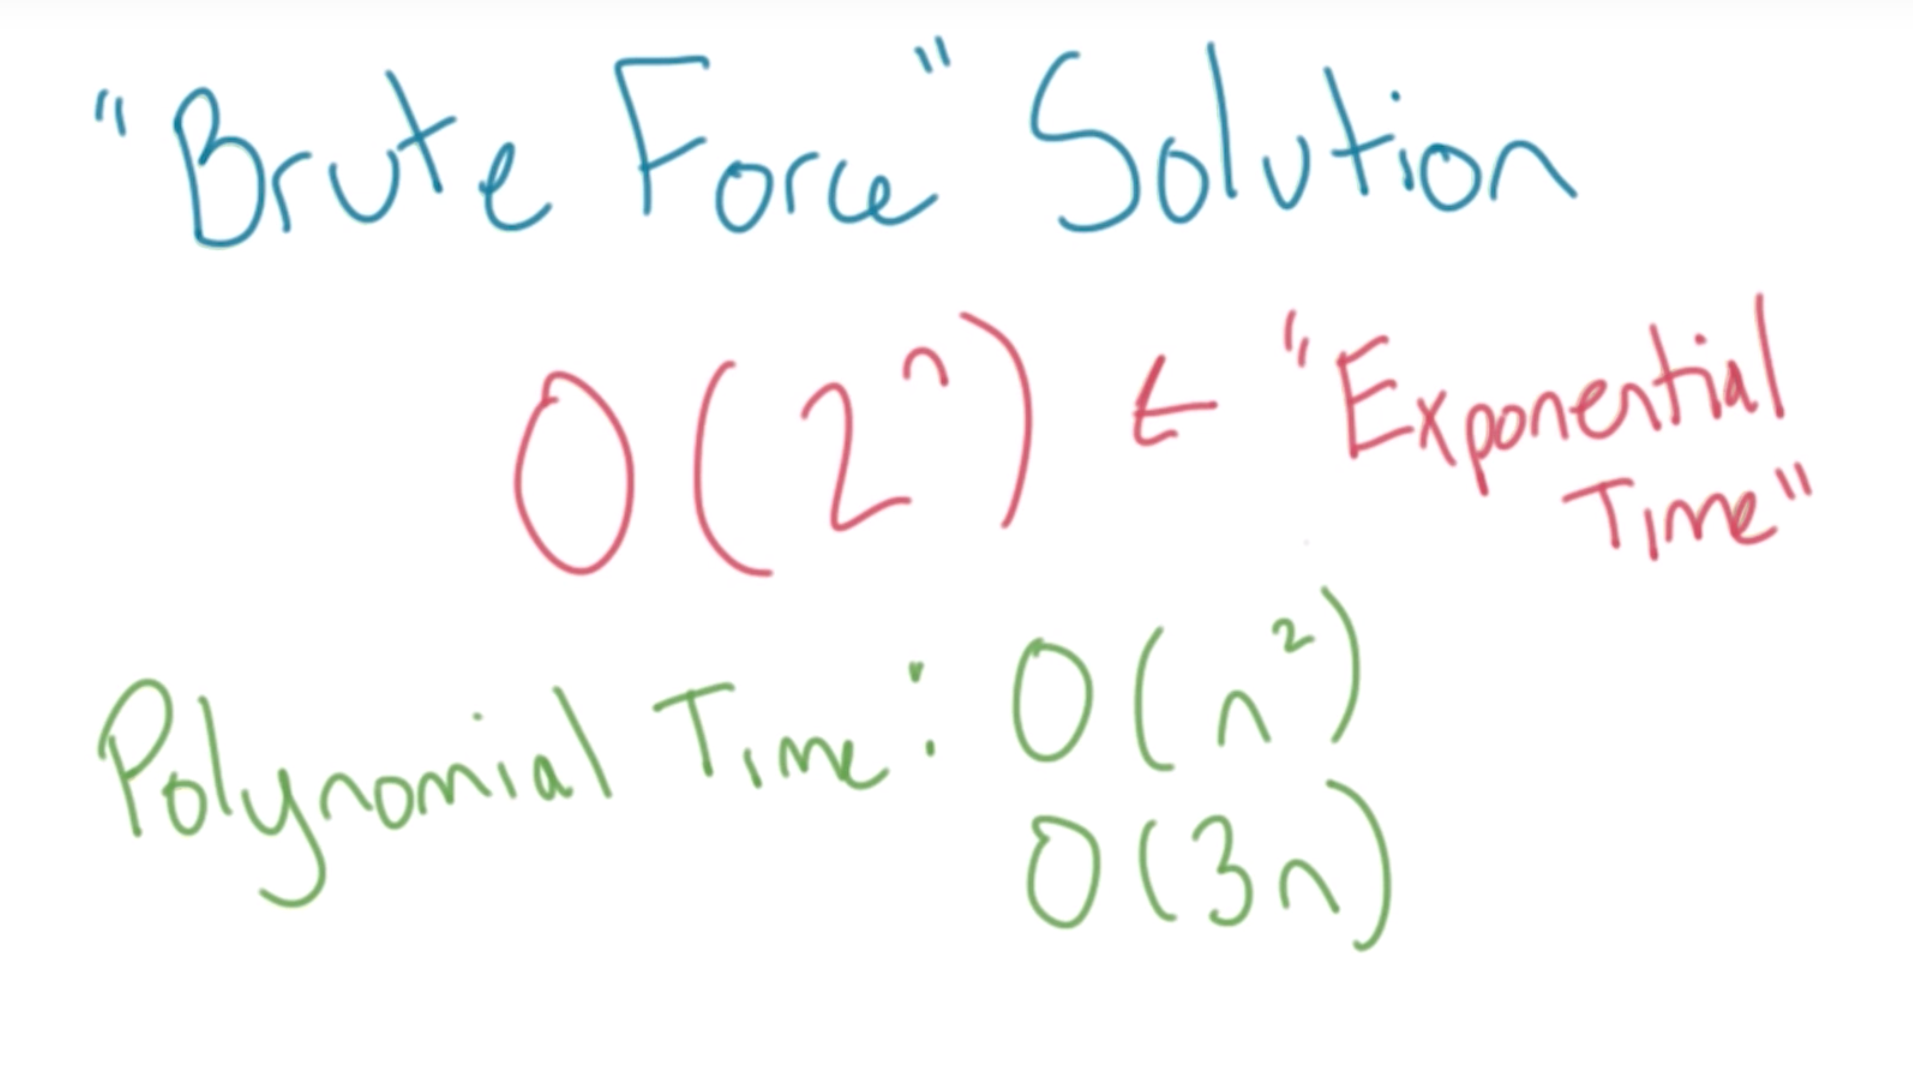 "Brute Force" Solution
O(2ⁿ) ← "Exponential
Time"
Polynomial Time: O(n²)
O(3n)